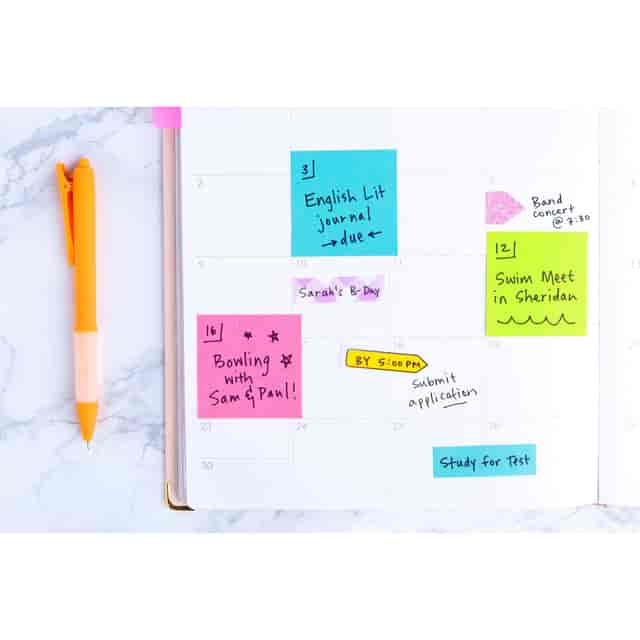 3
English Lit
journal
→due←
2
Band
concert
@ 7:30
12
Swim Meet
in Sheridan
9
10
11
Sarah's B-Day
16
Bowling
with
Sam & Paul!
18
19
BY 5:00 PM
Submit
application
23
24
25
26
30
Study for Test